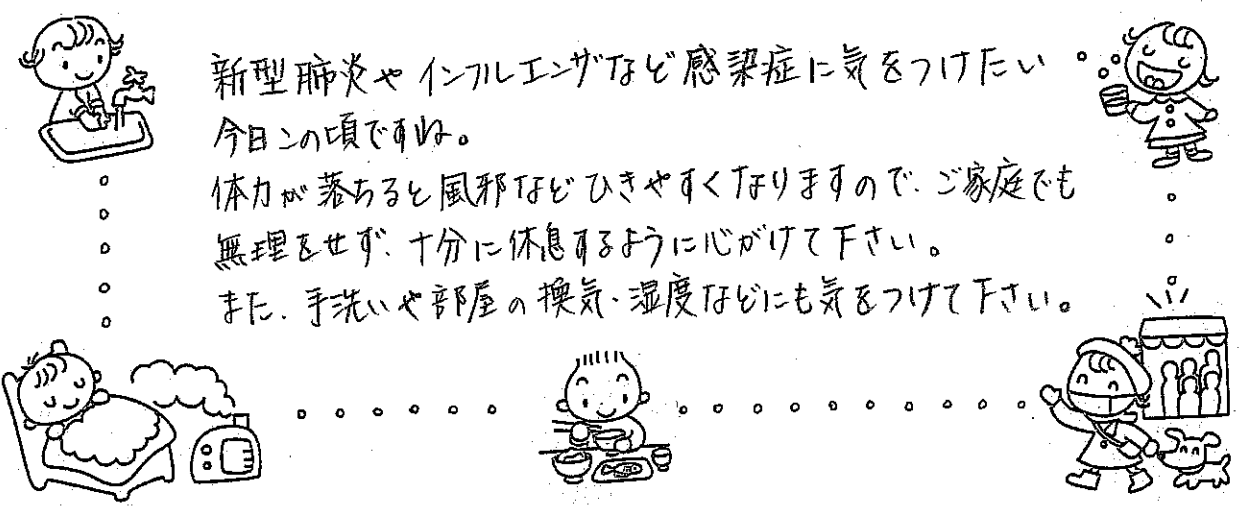 新型肺炎やインフルエンザなど感染症に気をつけたい
今日この頃ですね。
体力が落ちると風邪などひきやすくなりますので、ご家庭でも
無理をせず、十分に休息するように心がけて下さい。
また、手洗いや部屋の換気・湿度などにも気をつけて下さい。